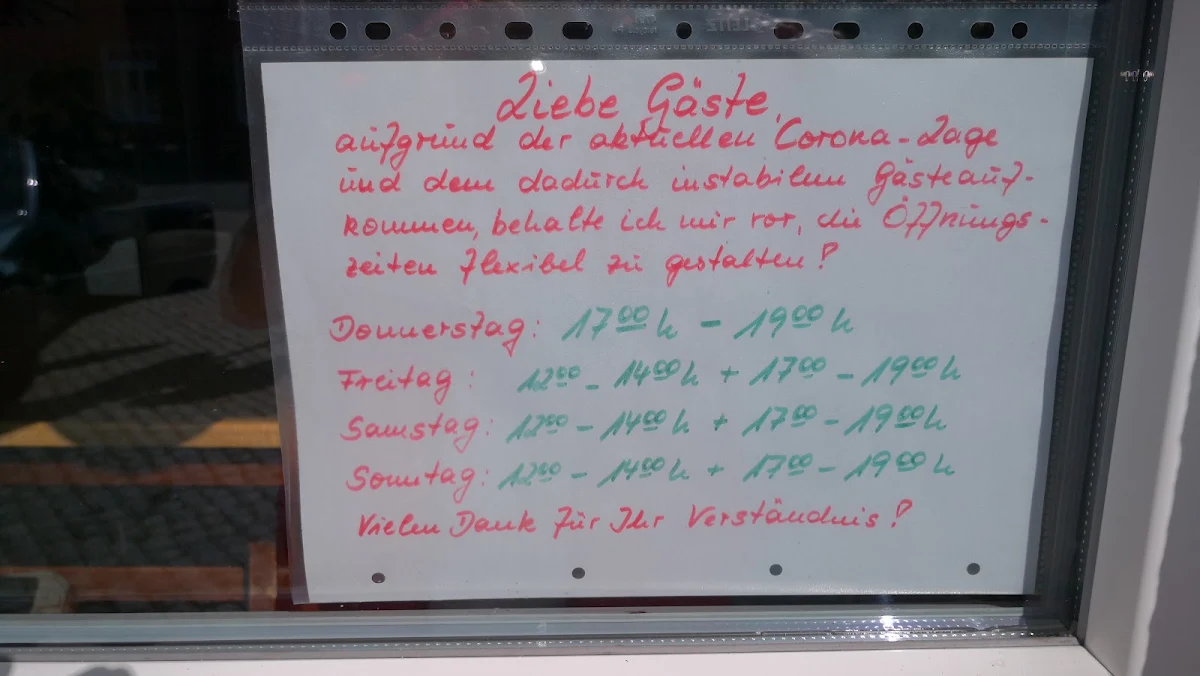 Liebe Gäste,
aufgrund der aktuellen Corona-Lage
und dem dadurch instabilem Gästeauf-
kommen, behalte ich mir vor, die Öffnungs-
zeiten flexibel zu gestalten!
Donnerstag: 17 00 h - 19 00 h
Freitag: 12 00 - 14 00 h + 17 00 - 19 00 h
Samstag: 12 00 - 14 00 h + 17 00 - 19 00 h
Sonntag: 12 00 - 14 00 h + 17 00 - 19 00 h
Vielen Dank für Ihr Verständnis!